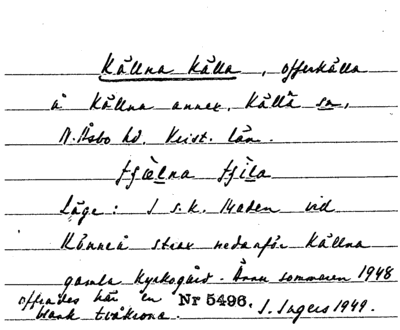 Källna källa, offerkälla
å Källna annex, Källa sn,
N. Åsbo hd. Krist. län.
Läge: I s.k. Maden vid
Rönneå strax nedanför Källna
gamla kyrkogård. Ännu sommaren 1948
offrades här en Nr 5496. I. Ingers 1949.
blank tvåkrona.